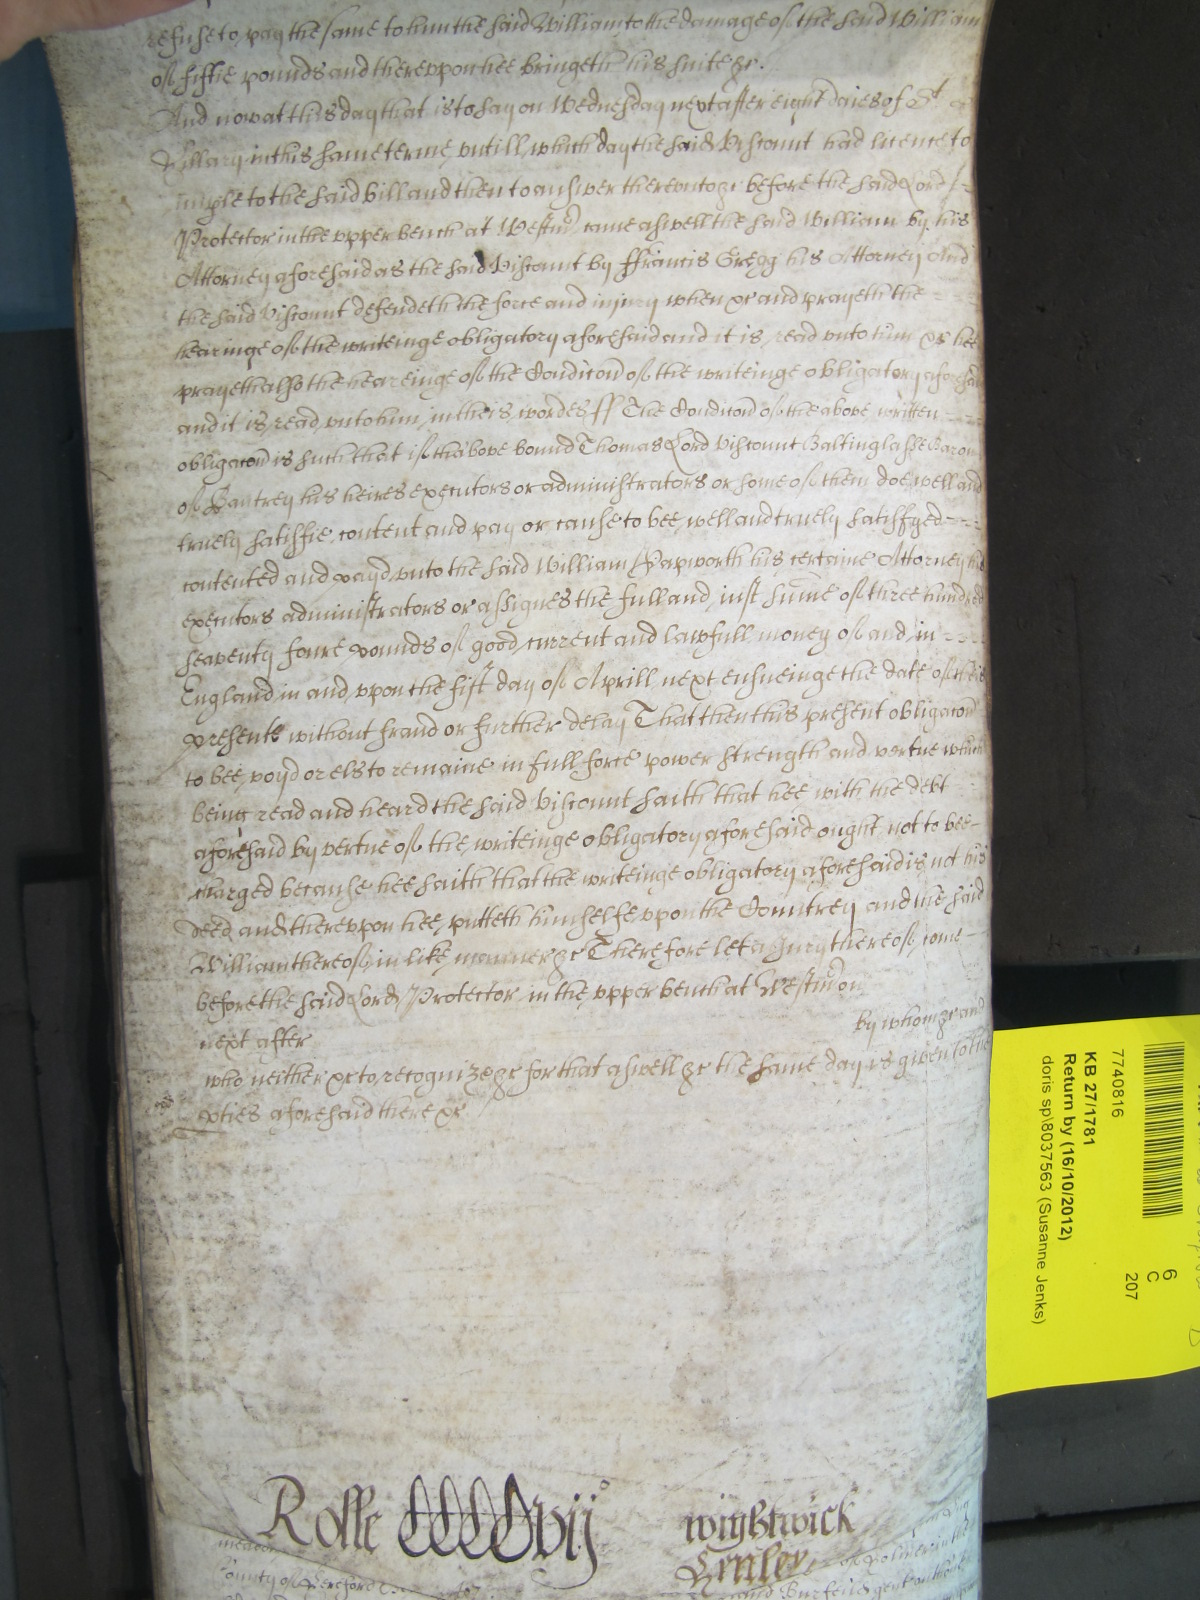 refuse to pay the same to him the said William to the damage of the said William
of fiftie pounds and thereupon hee bringeth his suite &c.
And now at this day that is to say on Wednesday next after eight daies of St
Hillary in this same terme vntill which day the said Viscount had licence to
imple to the said bill and then to answer therevnto &c before the said Lord
Protector in the vpper bench at Westmr came aswell the said William by his
Attorney aforesaid as the said Viscount by ffrancis Gregg his Attorney And
the said Viscount defendeth the force and iniury when &c and prayeth the
hearinge of the writeinge obligatory aforesaid and it is read vnto him &c hee
prayeth also the heareinge of the Condicon of the writeinge obligatory aforesaid
and it is read vnto him in theis wordes ss The Condicon of the above written
obligacon is such that if the above bound Thomas Lord Viscount Baltinglasse Baron
of Bantrey his heires executors or administrators or some of them doe well and
truely satisfie content and pay or cause to bee well and truely satisfyed
contented and payd vnto the said William Papworth his certaine Attorney his
executors administrators or assignes the full and iust summe of three hundred
seaventy foure pounds of good current and lawfull money of and in
England in and vpon the fift day of Aprill next ensueinge the date of theis
presents without fraud or further delay That then this present obligacon
to bee voyd or els to remaine in full force power strength and vertue which
being read and heard the said Viscount saith that hee with the debt
aforesaid by vertue of the writeinge obligatory aforesaid ought not to bee
charged because hee saith that the writeinge obligatory aforesaid is not his
deed and therevpon hee putteth himselfe vpon the Countrey and the said
William thereof in like manner &c Therefore let a Jury thereof come
before the said Lord Protector in the vpper bench at Westmr on
next after by whom &c and
who neither &c to recognize &c for that aswell &c the same day is given to the
pties aforesaid there &c
Rolle CCCCvij wightwick
County of Hereford
7740816
KB 27/1781
Return by (16/10/2012)
doris sp\8037563 (Susanne Jenks)
6
C
207